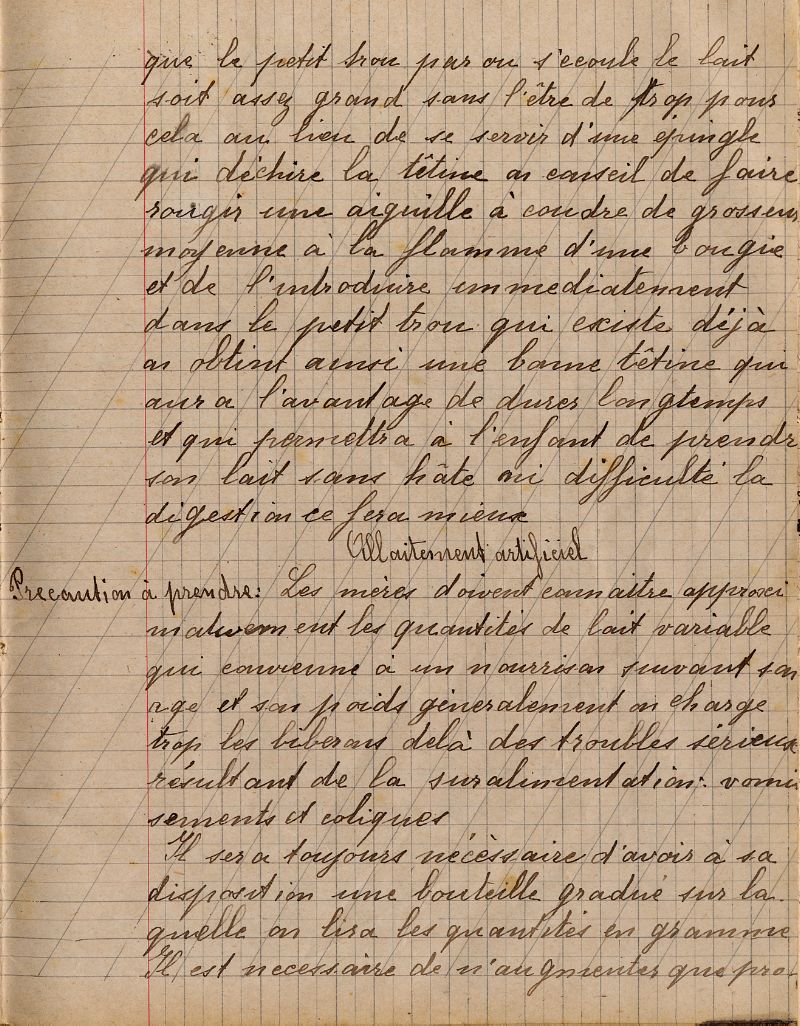 que le petit trou par ou s'ecoule le lait
soit assez grand sans l'être de trop pour
cela au lieu de se servir d'une épingle
qui déchire la têtine on conseil de faire
rougir une aiguille à coudre de grosseur
moyenne à la flamme d'une bougie
et de l'introduire immediatement
dans le petit trou qui existe déjà
on obtint ainsi une bonne têtine qui
aura l'avantage de durer longtemps
et qui permettra à l'enfant de prendr
son lait sans hâte ni difficulté la
digestion ce fera mieux
Allaitement artificiel
Precaution à prendre: Les mères doivent connaitre approxi
mativement les quantités de lait variable
qui convienne à un nourrison suivant son
age et son poids géneralement on charge
trop les biberons delà des troubles sérieux
résultant de la suralimentation: vomis
sements et coliques
Il sera toujours nécèssaire d'avoir à sa
disposition une bouteille gradué sur la
quelle on lira les quantités en gramme
Il est necessaire de n'augmenter que pro-